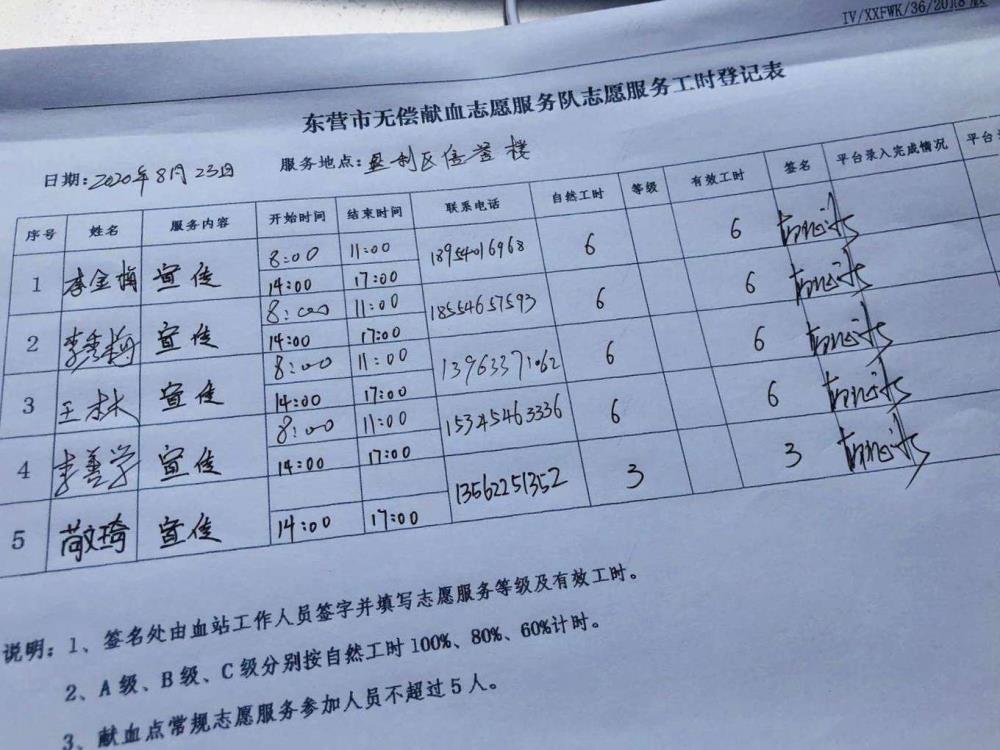 IV/XXFWK/36/2018版
东营市无偿献血志愿服务队志愿服务工时登记表
日期:2020年8月23日 服务地点:垦利区信誉楼
序号 姓名 服务内容 开始时间 结束时间 联系电话 自然工时 等级 有效工时 签名 平台录入完成情况 平台
1 李金梅 宣传 8:00 11:00 18954016968 6 6
14:00 17:00
2 李秀梅 宣传 8:00 11:00 18554657593 6 6
14:00 17:00
3 王林 宣传 8:00 11:00 13963371062 6 6
14:00 17:00
4 李善学 宣传 8:00 11:00 15345463336 6 6
14:00 17:00
5 文琦 宣传 13562251352 3 3
14:00 17:00
说明:1、签名处由血站工作人员签字并填写志愿服务等级及有效工时。
2、A级、B级、C级分别按自然工时100%、80%、60%计时。
3、献血点常规志愿服务参加人员不超过5人。